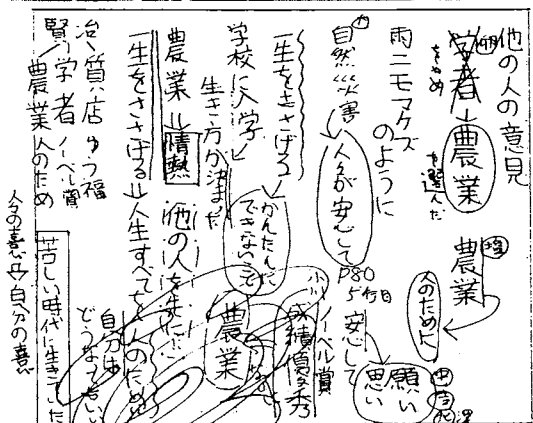 他の人の意見
学者→農業
をやめ
を選んだ
農業
人のために
雨ニモマケズ
のように
自然災害
人々が安心して
P80
5行目
安心して
願い
思い
一生をささげる
かんたんに
できないこと
小川
ノーベル賞
成績優秀
学校に入学
生き方が決まった
農業
農業
情熱
他の人を先に
一生をささげる
人生すべてを人のため
自分は
どうなってもいい
冶
質店
ゆう福
賢
学者
ノーベル賞
農業
人のため
苦しい時代に生きていた
人々の喜び
自分の喜